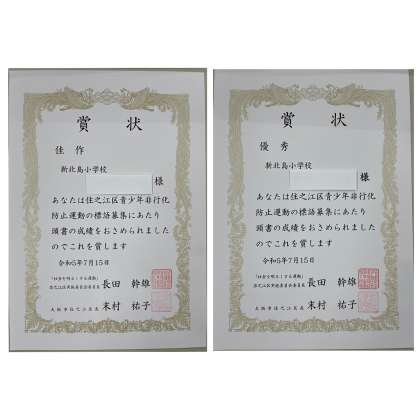 賞 状
佳 作
新北島小学校
様
あなたは住之江区青少年非行化
防止運動の標語募集にあたり
頭書の成績をおさめられました
のでこれを賞します
令和5年7月15日
「社会を明るくする運動」
住之江区実施委員会委員長 長田 幹雄
大阪市住之江区長 末村 祐子
賞 状
優 秀
新北島小学校
様
あなたは住之江区青少年非行化
防止運動の標語募集にあたり
頭書の成績をおさめられました
のでこれを賞します
令和5年7月15日
「社会を明るくする運動」
住之江区実施委員会委員長 長田 幹雄
大阪市住之江区長 末村 祐子